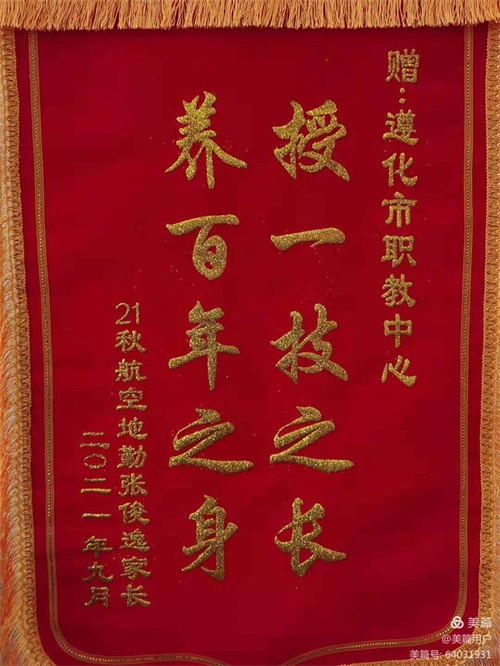 赠:遵化市职教中心
授一技之长
养百年之身
21秋航空地勤张俊逸家长
二〇二一年九月
美篇
@美篇用户
美篇号: 64031931